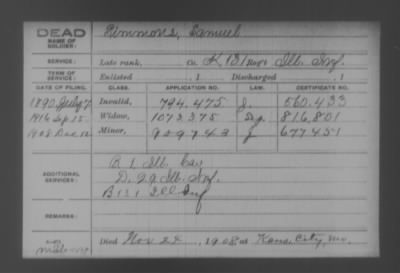 DEAD
NAME OF SOLDIER: Simmons, Samuel
SERVICE: Late rank, Co. K, 131 Reg't Ill. Inf.
TERM OF SERVICE: Enlisted , 1 Discharged , 1
DATE OF FILING. CLASS. APPLICATION NO. LAW. CERTIFICATE NO.
1890 July 7 Invalid, 794.475 J. 560.433
1916 Sep. 15 Widow, 1073375 816.801
1908 Dec 12 Minor, 909743 J 677451
ADDITIONAL SERVICES: B 1 Ill. Cav
D. 29 Ill. Inf.
B 131 Ill Inf
REMARKS:
Died Nov 22, 1908 at Kans. City, Mo.